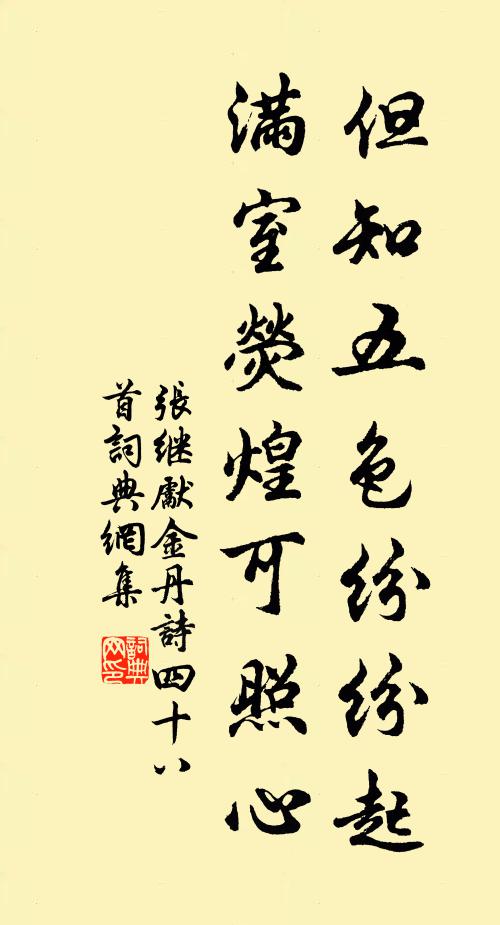 但知五色紛紛起
滿室熒煌可照心
張继獻金丹詩四十八
首詞典網集
詞典網印